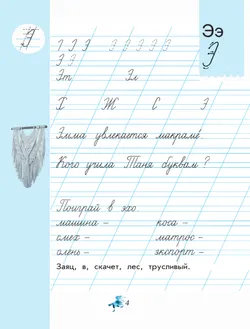 Ээ
Э Э Э Э Э Э Э Э Э
Э Э
Эт Эл
Х Ж С Э
Эмма увлекается макраме
Кого учила Таня буквам ?
Поиграй в эхо.
машина – коса –
смех – матрос –
олень – экспорт –
Заяц, в, скачет, лес, трусливый.
4